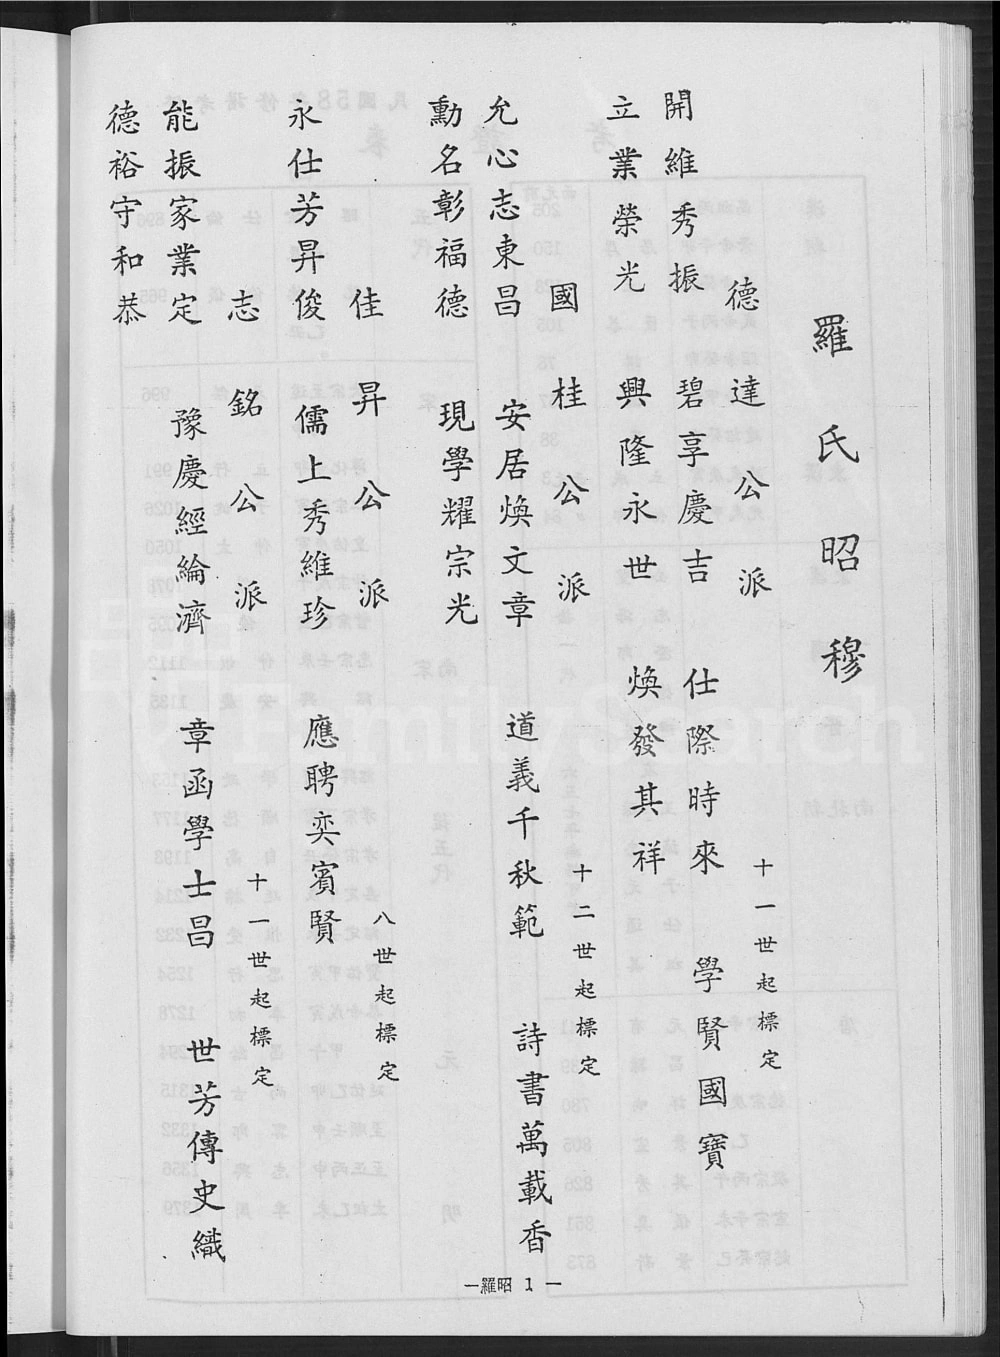 羅氏昭穆
德達公派 十一世起標定
開維秀振 碧享慶吉 仕際時來 學賢國寶
立業榮光 興隆永世 煥發其祥
國桂公派 十二世起標定
允心志東昌 安居煥文章 道義千秋範 詩書萬載香
勳名彰福德 現學耀宗光
佳昇公派 八世起標定
永仕芳昇俊 儒上秀維珍 應聘奕賓賢
志銘公派 十一世起標定
能振家業定 豫慶經綸濟 章函學士昌 世芳傳史織
德裕守和恭
—羅昭 1 —